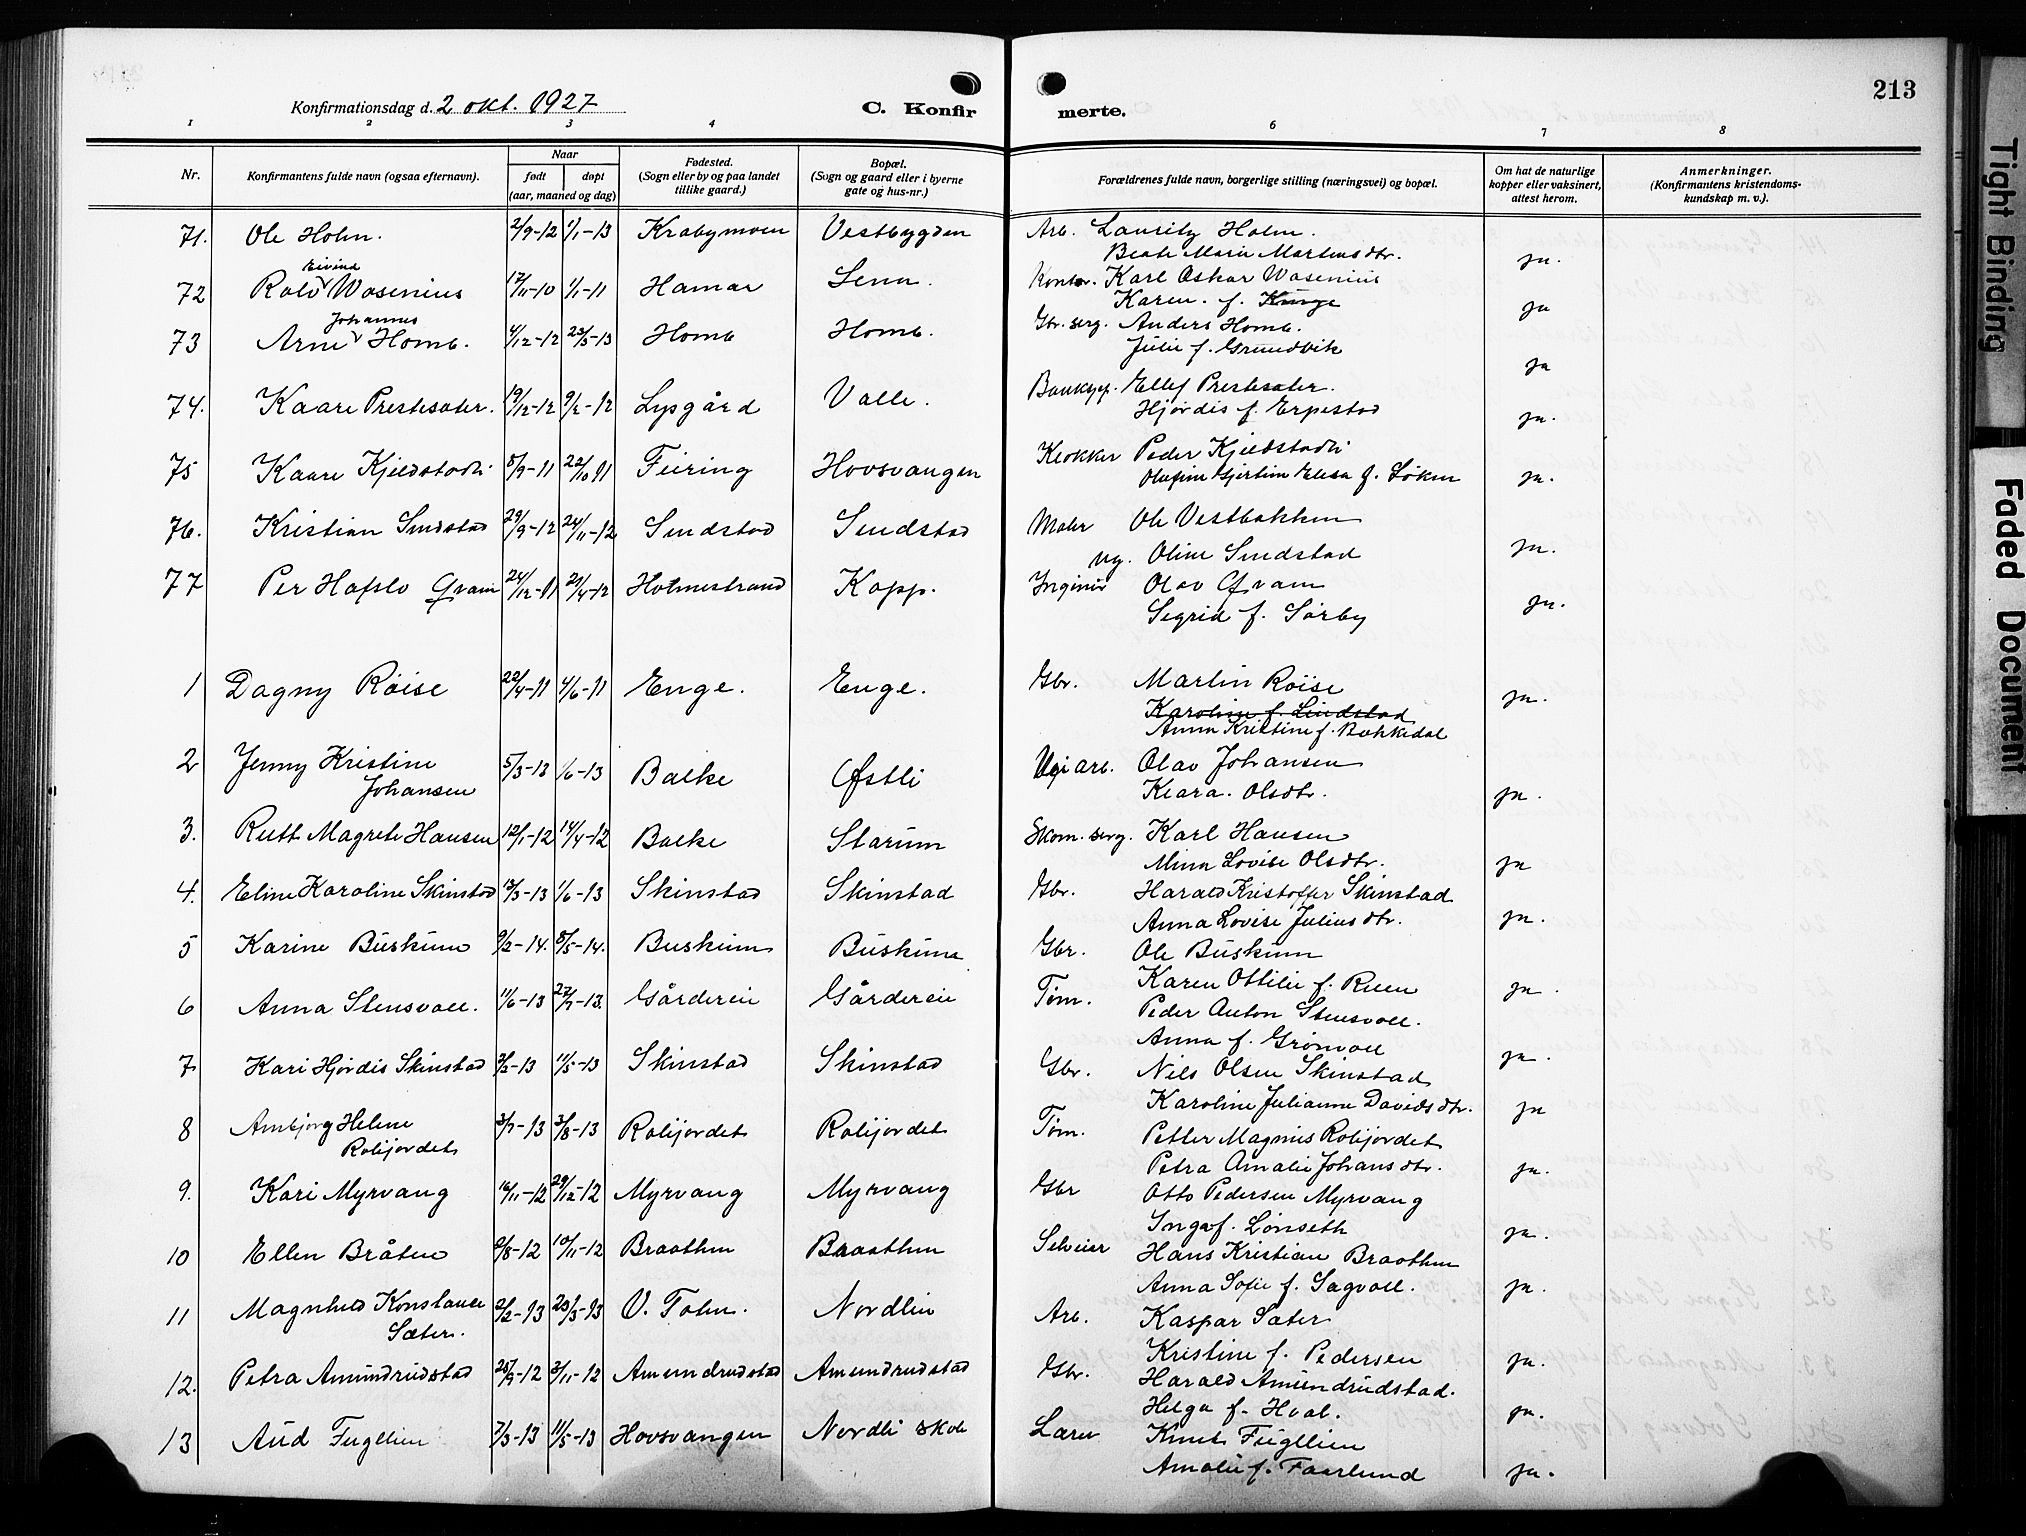 213
Konfirmationsdag d. 2 okt. 1927
C. Konfir merte.
1 2 3 4 6 7 8
Nr. Konfirmantens fulde navn (ogsaa efternavn). Naar født døpt (aar, maaned og dag) Fødested. (Sogn eller by og paa landet tillike gaard.) Bopæl. (Sogn og gaard eller i byerne gate og hus-nr.) Forældrenes fulde navn, borgerlige stilling (næringsvei) og bopæl. Om hat de naturlige kopper eller vaksinert, attest herom. Anmerkninger. (Konfirmantens kristendoms-kundskap m. v.).
71. Ole Holm. 2/9-12 1/1-13 Krabymoen Vestbygden Arb. Lauritz Holm.
Beate Marie Martinsdtr. ja.
72 Rolv Eivind Wasenius 17/11-10 1/1-11 Hamar Lena. Kontor. Karl Oskar Wasenius
Karen. f. Kunge ja
73 Arne Johannes Homb. 4/12-12 23/3-13 Homb Homb. Gbr. serg. Anders Homb.
Julie f. Grundvik ja
74. Kaare Prestesæter. 19/12-12 9/2-12 Lysgård Valle. Bankgg. Ellef Prestesæter.
Hjørdis f. Erpestad ja.
75 Kaare Kjeldstadli 5/9-11 22/10 11 Feiring Hovsvangen Klokker Peder Kjeldstadli
Olufine Gjertine Elisa f. Løken ja.
76. Kristian Sindstad 29/9-12 24/11-12 Sindstad Sindstad Maler Ole Vestbakken
Ug. Oline Sindstad ja.
77 Per Hafslo Qvam 24/12-11 21/4-12 Holmestrand Kapp. Ingeniør Olav Qvam
Sigrid f. Sørby ja.
1 Dagny Røise 22/4-11 4/6-11 Enge. Enge. Gbr. Martin Røise
Karoline f. Lindstad ja.
Anna Kristine f. Bakkedal
2 Jenny Kristine Johansen 5/3-13 1/6-13 Balke Østli Ugi arb. Olav Johansen
Klara. Olsdtr. ja.
3. Rutt Magrete Hansen 12/1-12 14/4-12 Balke Starum Skom. serg. Karl Hansen
Mina Lovise Olsdtr. ja
4. Eline Karoline Skinstad 13/3-13 1/6-13 Skinstad Skinstad Gbr. Harald Kristoffer Skinstad
Anna Lovise Juliusdtr. ja.
5 Karine Buskum 9/2-14. 8/5-14. Buskum Buskum Gbr. Ole Buskum
Karen Ottilie f. Ruen ja.
6 Anna Stensvoll. 11/6-13 27/7-13. Gårdereie Gårdereie Tøm. Peder Anton Stensvoll.
Anna f. Grønvoll ja.
7 Kari Hjørdis Skinstad 2/2-13 11/5-13 Skinstad Skinstad Gbr. Nils Olsen Skinstad
Karoline Julianne Davidsdtr. ja
8 Ambjørg Helene Rolijordet 3/7-13 3/8-13 Rolijordet Rolijordet Tøm. Petter Magnus Rolijordet
Petra Amalie Johansdtr. ja.
9. Kari Myrvang 16/11-12 29/12-12 Myrvang Myrvang Gbr Otto Pedersen Myrvang
Inga f. Lønseth ja.
10 Ellen Bråten 2/8-12 10/11-12 Braathen Braathen Selveier Hans Kristian Braathen
Anna Sofie f. Sagvoll. ja.
11 Magnhild Konstance Sæter. 2/2-13 23/3-13 V. Toten. Nordlien Arb. Kaspar Sæter
Kristine f. Pedersen ja.
12. Petra Amundrudstad 25/9-12 3/11-12 Amundrudstad Amundrudstad Gbr. Harald Amundrudstad.
Helga f. Hval. ja.
13 Aud Fuglien 7/3-13 11/5-13 Hovsvangen Nordli Skole Lærer Knut Fuglien
Amalie f. Faarlund ja.
Tight Binding
Faded Document